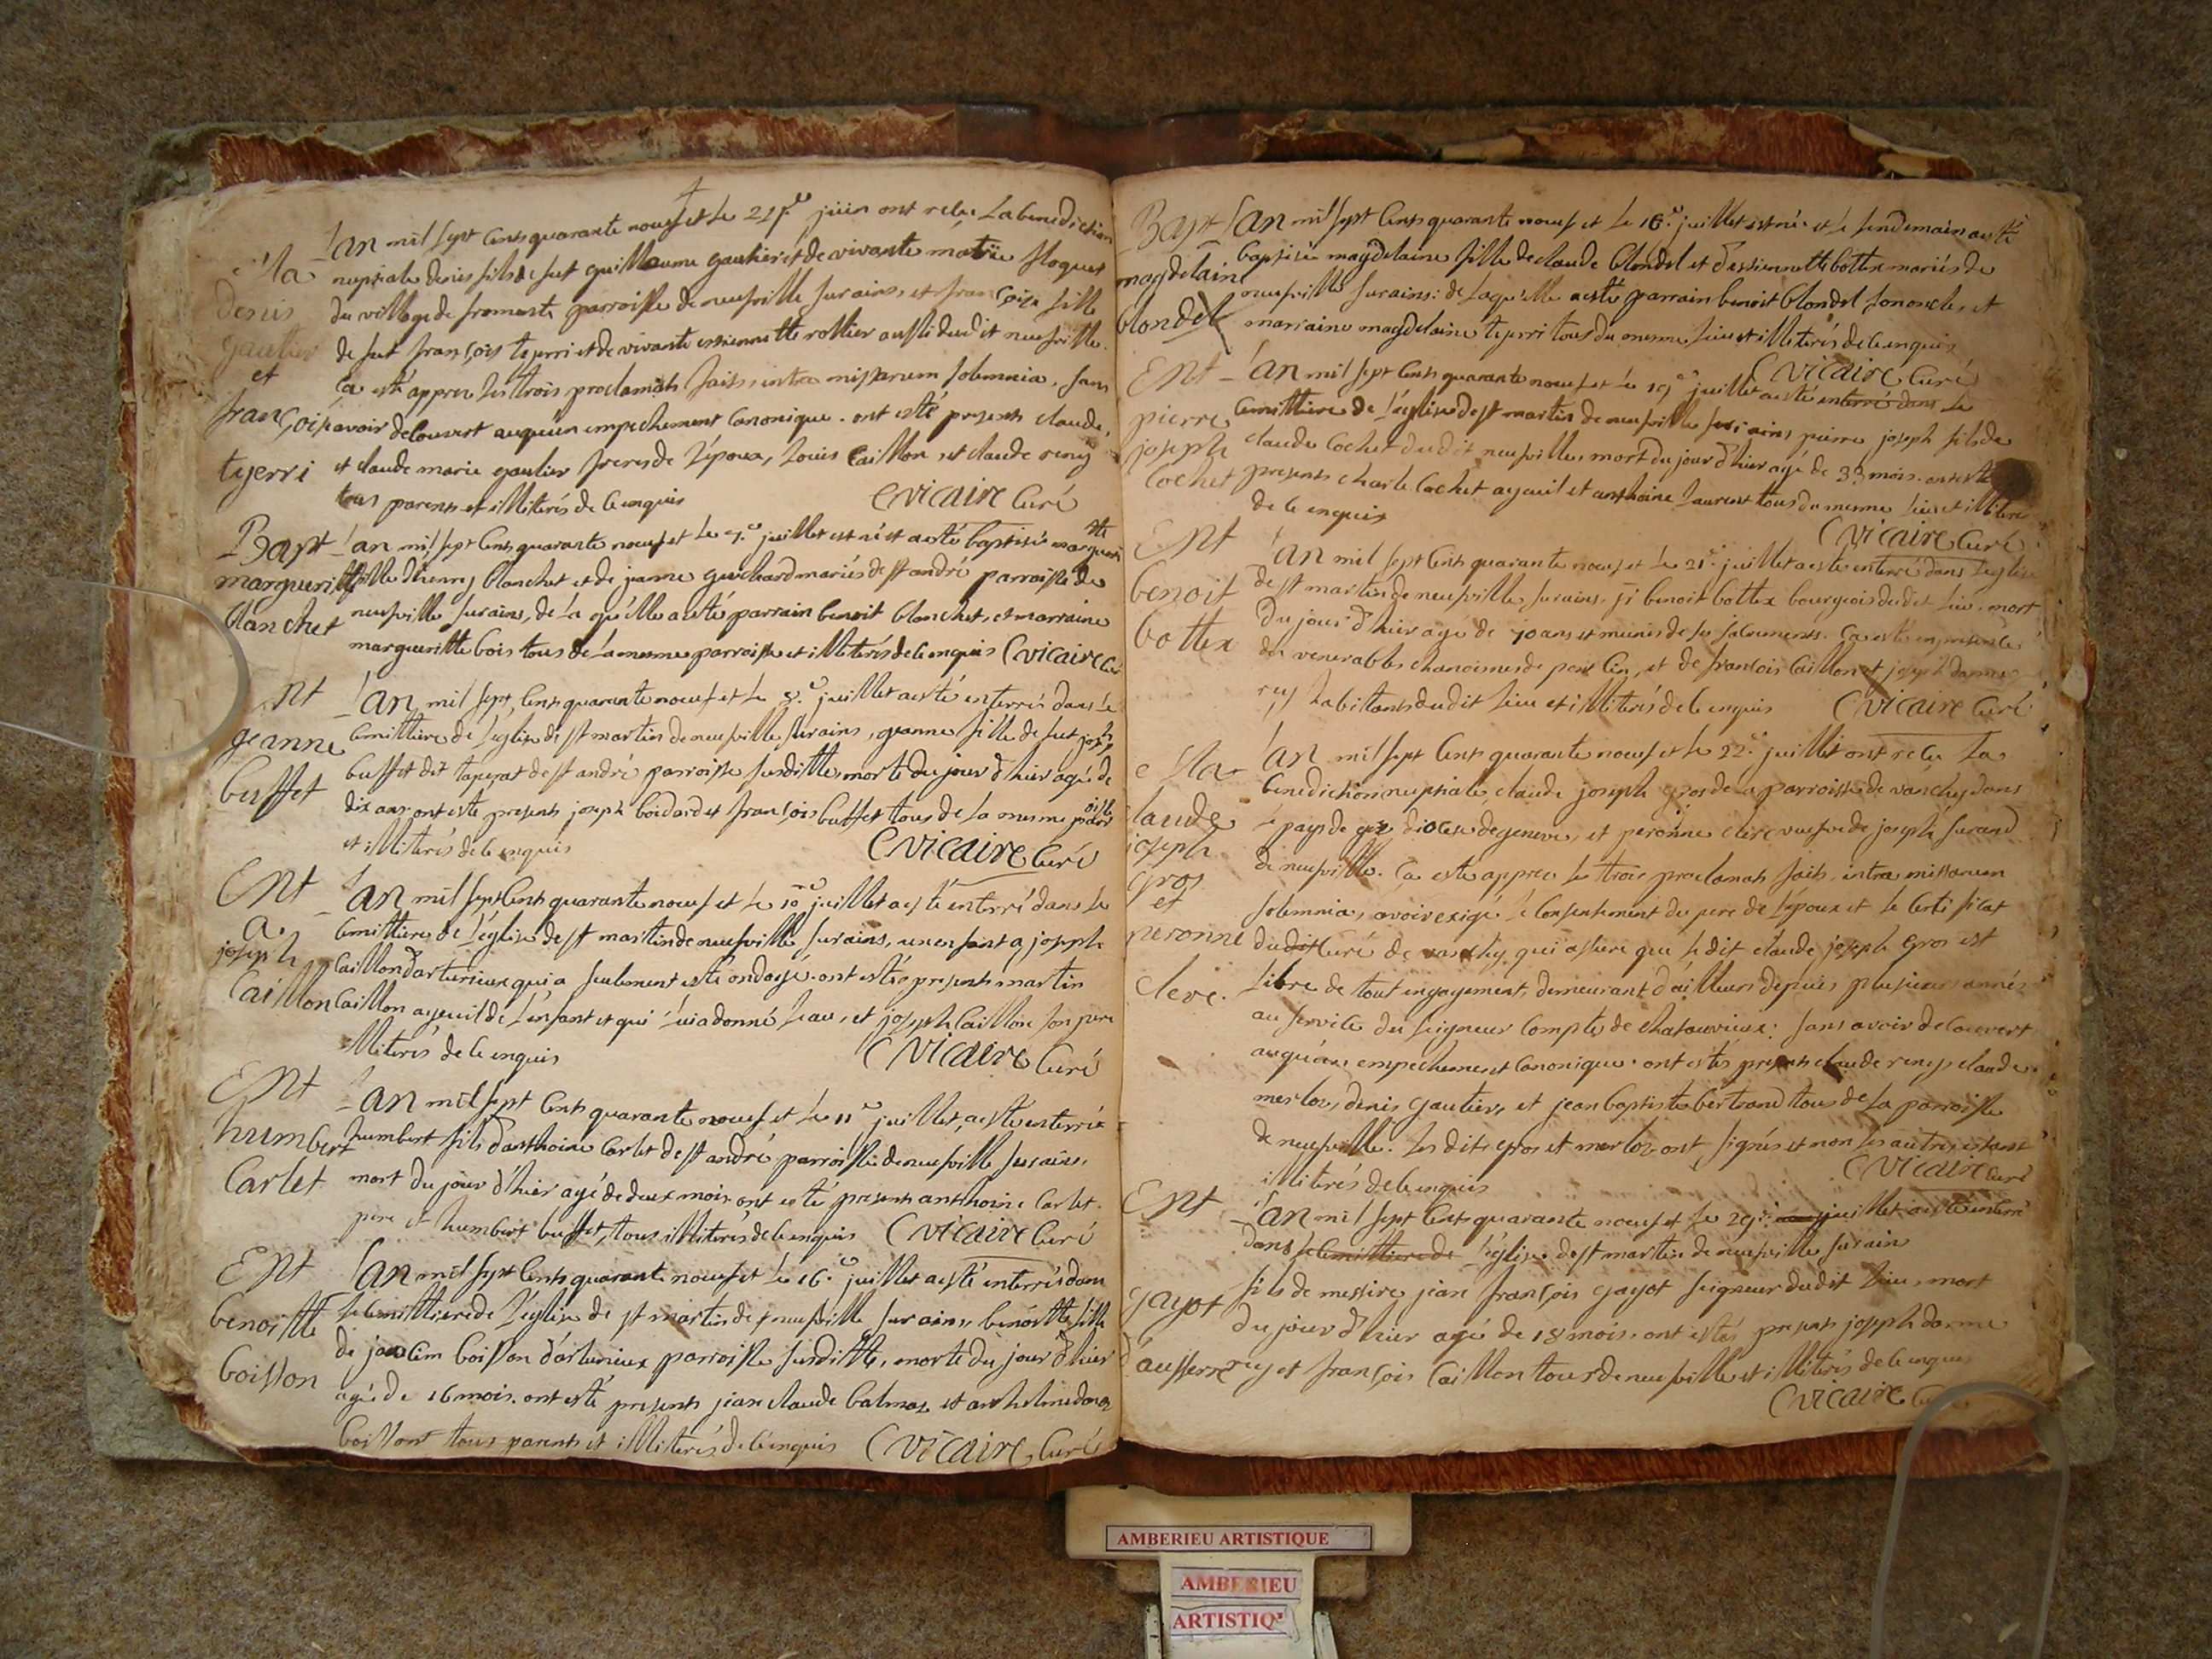 l'an mil sept cents quarante neuf et le juin ont receu la benediction
nuptiale denis fils de fut guillaume gautier et de vivante floquet
du village de fromente parroisse de neufville surains, et françoise fille
de fut françois tyerri et de vivante estiennette rollier aussi dudit neufville.
ça esté apprez les trois proclamats faits, intra missarum solemnia, sans
avoir decouvert auqu'un empechement canonique. ont esté presents claude,
et claude marie gautier freres de l'époux, louis caillon, et claude reng
tous parents et illiterés de ce enquis Cvicaire Curé
sla
denis
gautier
et
françoise
tyerri
Bapt
margueritte
blanchet
l'an mil sept cents quarante neuf et le 7.e juillet est né et a esté baptisée margueritte
fille d'henry blanchet et de jeanne guichard mariés de st andré parroisse de
neufville surains, de la qu'elle a esté parrain benoit blanchet, et marraine
margueritte bois tous de la mesme parroisse et illiterés de ce enquis Cvicaire Cu
nt
jeanne
buffet
l'an mil sept cents quarante neuf et le 8.e juillet a esté enterrée dans le
cemittiere de l'eglise de st martin de neufville surains, jeanne fille de fut joseph
buffet dit taperat de st andré parroisse susditte, morte du jour d'hier agé de
dix ans. ont esté presents joseph et françois buffet tous de la mesme parroisse
et illiterés de ce enquis Cvicaire Curé
Ent
a
joseph
Caillon
l'an mil sept cents quarante neuf et le 10e juillet a esté enterré dans le
cemittiere de l'eglise de st martin de neufville surains, un enfant a joseph
caillon d'arturieux qui a seulement esté ondoyé. ont esté presents martin
caillon ayeuil de l'enfant et qui luia donné l'eau, et joseph caillon son pere
illiterés de ce enquis Cvicaire Curé
Ent
humbert
Carlet
l'an mil sept cents quarante neuf et le 11e juillet, a esté enterré
humbert fils d'anthoine carlet de st andré parroisse de neufville surains,
mort du jour d'hier agé de deux mois. ont esté presents anthoine carlet
pere et humbert buffet, tous illiterés de ce enquis Cvicaire Curé
Ent
benoitte
boisson
l'an mil sept cents quarante neuf et le 16.e juillet a esté enterrée dans
le cemittiere de l'eglise de st martin de neufville surains, benoitte fille
de boisson d'arturieux parroisse susditte, morte du jour d'hier
agé de 16 mois. ont esté presents jean claude balmaz et
boisson tous parents et illiterés de ce enquis Cvicaire Curé
Bapt
magdelaine
blondel
l'an mil sept cents quarante neuf et le 16.e juillet est née et le lendemain a esté
baptisée magdelaine fille de claude blondel et d'estiennette bottex mariés de
neufville surains: de laqu'elle a esté parrain benoit blondel son oncle, et
marraine magdelaine tyerri tous du mesme lieu et illiterés de ce enquis
Cvicaire Curé
Ent
pierre
joseph
Cochet
l'an mil sept cents quarante neuf et le 19e juillet a esté enterré dans le
cemittiere de l'eglise de st martin de neufville surains pierre joseph fils de
claude cochet dudit neufville, mort du jour d'hier agé de 33 mois. ont esté
presents charle cochet ayeuil et anthoine laurent tous du mesme lieu et illiterés
de ce enquis
Cvicaire Curé
Ent
benoit
bottex
l'an mil sept cents quarante neuf et le 21.e juillet a esté enterré dans l'eglise
de st martin de neufville surains, benoit bottex bourgeois dudit lieu, mort
du jour d'hier agé de 70 ans et munis de ses sacrements. ça esté en presence
des venerables chanoines de pont d'ain, et de françois caillon et joseph damme
rey habitants dudit lieu et illiterés de ce enquis Cvicaire Curé
sla
claude
joseph
gros
et
peronne
clerc.
l'an mil sept cents quarante neuf et le 22.e juillet ont receu la
benediction nuptiale, claude joseph gros de la parroisse de vanchy dans
le pays de gex diocese de geneve, et peronne clerc veufve de joseph jurand
de neufville. ça esté apprez les trois proclamats faits, intra missarum
solemnia, avoir exigé le consentement du pere de l'époux et le certificat
du dit curé de vanchy, qui assure que ledit claude joseph gros est
libre de tout engagement, demeurant d'ailleurs depuis plusieurs années
au service du seigneur compte de chatauvieux: sans avoir decouvert
auqu'un empechement canonique. ont estés presents claude reng, claude
merloz, denis gautier, et jean baptiste bertrand tous de la parroisse
de neufville. les dits gros et merloz ont signés et non les autres estant
illiterés de ce enquis Cvicaire curé
Ent
gayot
d'ausserre
l'an mil sept cents quarante neuf et le 29.e juillet a esté enterré
dans le cemittiere de l'eglise de st martin de neufville surain
fils de messire jean françois gayot seigneur dudit lieu, mort
du jour d'hier agé de 18 mois. ont estés presents joseph damme
rey et françois caillon tous de neufville et illiterés de ce enquis
Cvicaire Cu
AMBERIEU ARTISTIQUE
AMBERIEU
ARTISTIQ